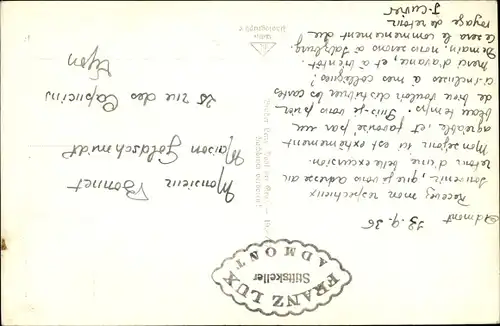 Admont 23.9.36
Recevez mon respectueux
souvenir, que je vous adresse au
retour d'une belle excursion.
Mon séjour ici est extrêmement
agréable, et, favorisé par un
beau temps. Puis-je vous prier
de bien vouloir distribuer les cartes
ci-incluses à mes collègues?
Merci d'avance, et à bientôt.
Demain, nous serons à Salzburg.
Ce sera le commencement du
voyage de retour.
J. Cuvier
Monsieur Bonnet
Maison Goldschmidt
25 rue des Capucins
Lyon
Stiftskeller
FRANZ LUX
ADMONT